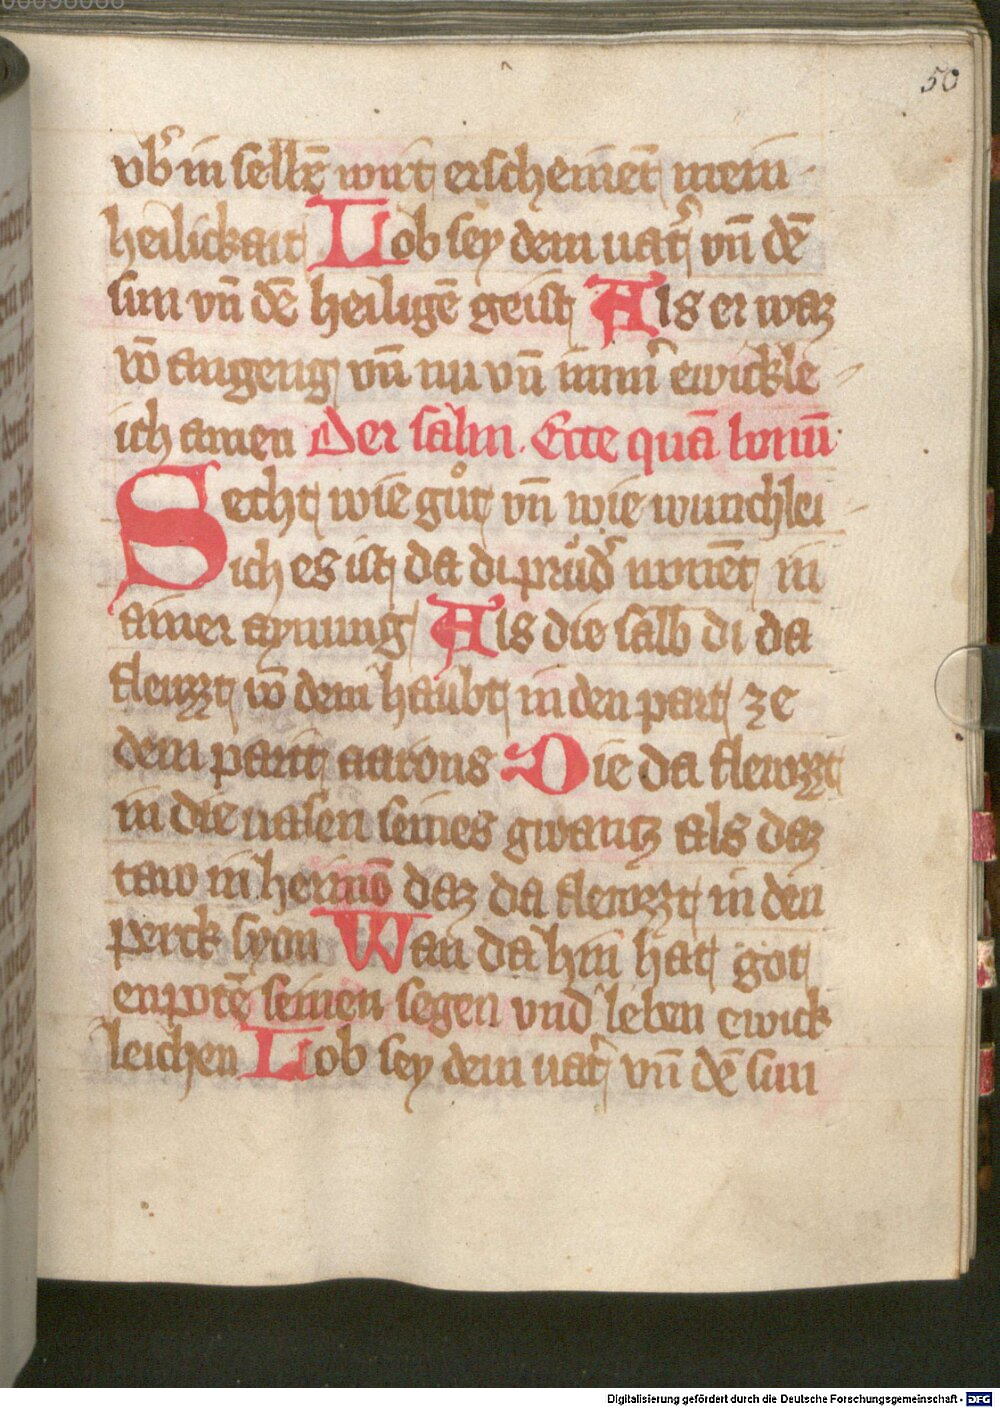 50
vb̛ in selbē wirt erscheinēt mein
heilickait Lob sey dem vat̛ vn̄ dē
sun vn̄ dē heiligē geist Als er waz
vō angeng vn̄ nu vn̄ im̄m̛ ewickle
ich amen Der salm. Ecce quā bonū
Secht wie gůt vn̄ wie wunchlei
ich es ist da di průd̛ wonēt in
ainer aynung Als die salb di da
flewzzt vō dem haubt in den part ze
dem parit aarons Die da flewzzt
in die nasen seines gwantz als daz
taw in hermō daz da flewzzt in den
perck syon Wan da hin hat got
enpotē seinen segen vnd leben ewick
leichen Lob sey dem vat̛ vn̄ dē sun
Digitalisierung gefördert durch die Deutsche Forschungsgemeinschaft - DFG